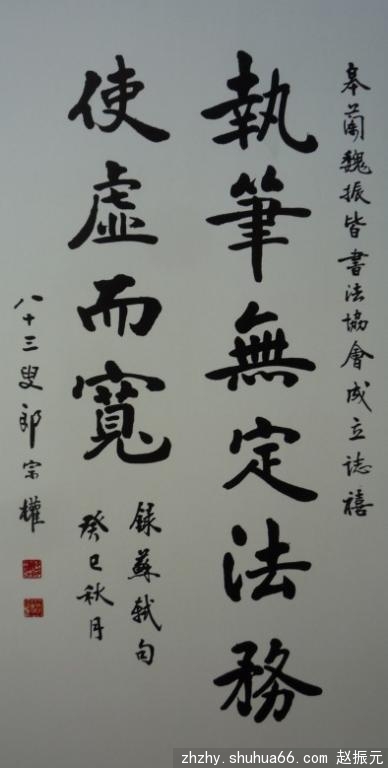 皋蘭魏振皆書法協會成立誌禧
執筆無定法務
使虛而寬
錄蘇軾句
癸巳秋月
八十三叟郎宗權
zhzhy.shuhua66.com 赵振元